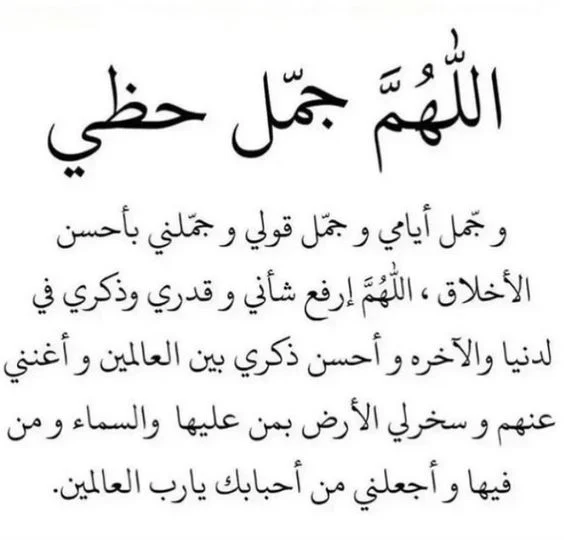 اللّٰهُمَّ جمّل حظي
و جّمل أيامي و جمّل قولي و جمّلني بأحسن
الأخلاق ، اللّٰهُمَّ إرفع شأني و قدري وذكري في
لدنيا والآخره و أحسن ذكري بين العالمين و أغنني
عنهم و سخرلي الأرض بمن عليها والسماء و من
فيها و أجعلني من أحبابك يارب العالمين.